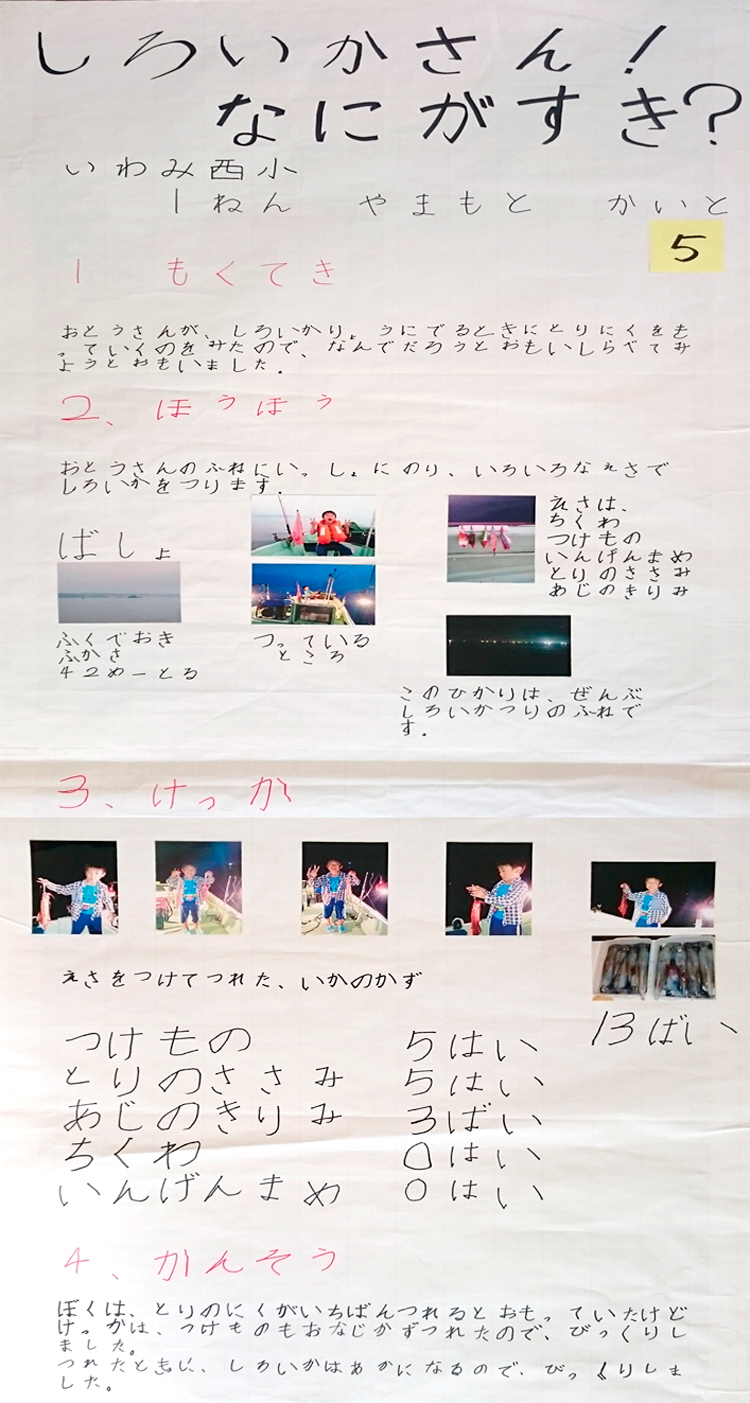 しろいかさん!
なにがすき?
いわみ西小
1ねん やまもと かいと
5
1 もくてき
おとうさんが、しろいかりょうにでるときにとりにくをも
っていくのをみたので、なんでだろうとおもいしらべてみ
ようとおもいました.
2、ほうほう
おとうさんのふねにいっしょにのり、いろいろなえさで
しろいかをつります.
ばしょ
ふくでおき
ふかさ
42めーとる
つっている
ところ
えさは、
ちくわ
つけもの
いんげんまめ
とりのささみ
あじのきりみ
このひかりは、ぜんぶ
しろいかつりのふねで
す.
3、けっか
えさをつけてつれた、いかのかず
つけもの 5はい
とりのささみ 5はい
あじのきりみ 3ばい
ちくわ 0はい
いんげんまめ 0はい
13ばい
4、かんそう
ぼくは、とりのにくがいちばんつれるとおもっていたけど
けっかは、つけものもおなじかずつれたので、びっくりし
ました。
つれたときに、しろいかはあかになるので、びっくりしま
した。